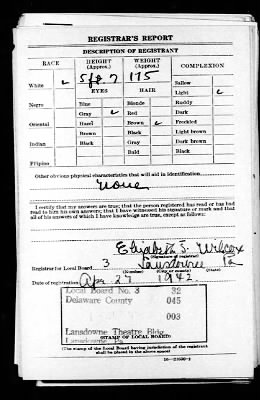 REGISTRAR'S REPORT
DESCRIPTION OF REGISTRANT
RACE HEIGHT (Approx.) WEIGHT (Approx.) COMPLEXION
5 ft. 7 175 Sallow
White ✓ EYES HAIR Light ✓
Negro Blue Blonde Ruddy
Gray ✓ Red Dark
Oriental Hazel Brown ✓ Freckled
Brown Black Light brown
Indian Black Gray Dark brown
Bald Black
Filipino
Other obvious physical characteristics that will aid in identification
None
I certify that my answers are true; that the person registered has read or has had read to him his own answers; that I have witnessed his signature or mark and that all of his answers of which I have knowledge are true, except as follows:
Elizabeth S. Wilcox
(Signature of registrar)
Registrar for Local Board 3 Lansdowne Pa
(Number) (City or county) (State)
Date of registration Apr 27 1942
Local Board No. 3 32
Delaware County 045
003
Lansdowne Theatre Bldg
Lansdowne Pa
(STAMP OF LOCAL BOARD)
(The stamp of the Local Board having jurisdiction of the registrant shall be placed in the above space)